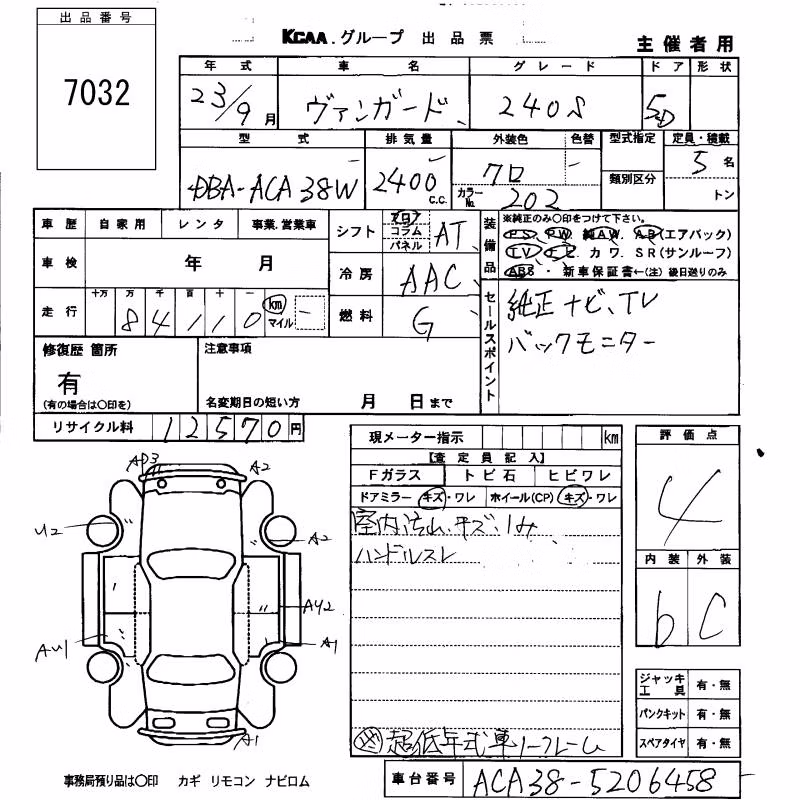 出品番号
7032
KCAA.グループ 出品票
主催者用
年式 車名 グレード ドア 形状
23/9 月 ヴァンガード 240S 5D
型式 排気量 外装色 色替 型式指定 定員・積載
DBA-ACA38W 2400 c.c. クロ - 5 名
カラーNo. 202 類別区分 トン
車歴 自家用 レンタ 事業.営業車
シフト フロア コラム パネル AT
装備品 ※純正のみ○印をつけて下さい。
PS PW 純AW. AB(エアバック)
TV ナビ カワ. SR(サンルーフ)
ABS・新車保証書←(注)後日送りのみ
車検 年 月
冷房 AAC
走行 十万 万 千 百 十 一
84110 km マイル -
燃料 G
セールスポイント
純正ナビ、TV
バックモニター
修復歴 箇所
有
(有の場合は○印を)
注意事項
名変期日の短い方 月 日まで
リサイクル料 12570円
現メーター指示 km
【査定員記入】
Fガラス トビ石 ヒビワレ
ドアミラー キズ・ワレ ホイール(CP) キズ・ワレ
室内汚れ、キズ、しみ
ハンドルスレ
超低年式車
評価点
4
内装 外装
b C
ジャッキ工具 有・無
パンクキット 有・無
スペアタイヤ 有・無
A2
U2
A2
AY2
A1
A1
事務局預り品は○印 カギ リモコン ナビロム
車台番号 ACA38-5206458